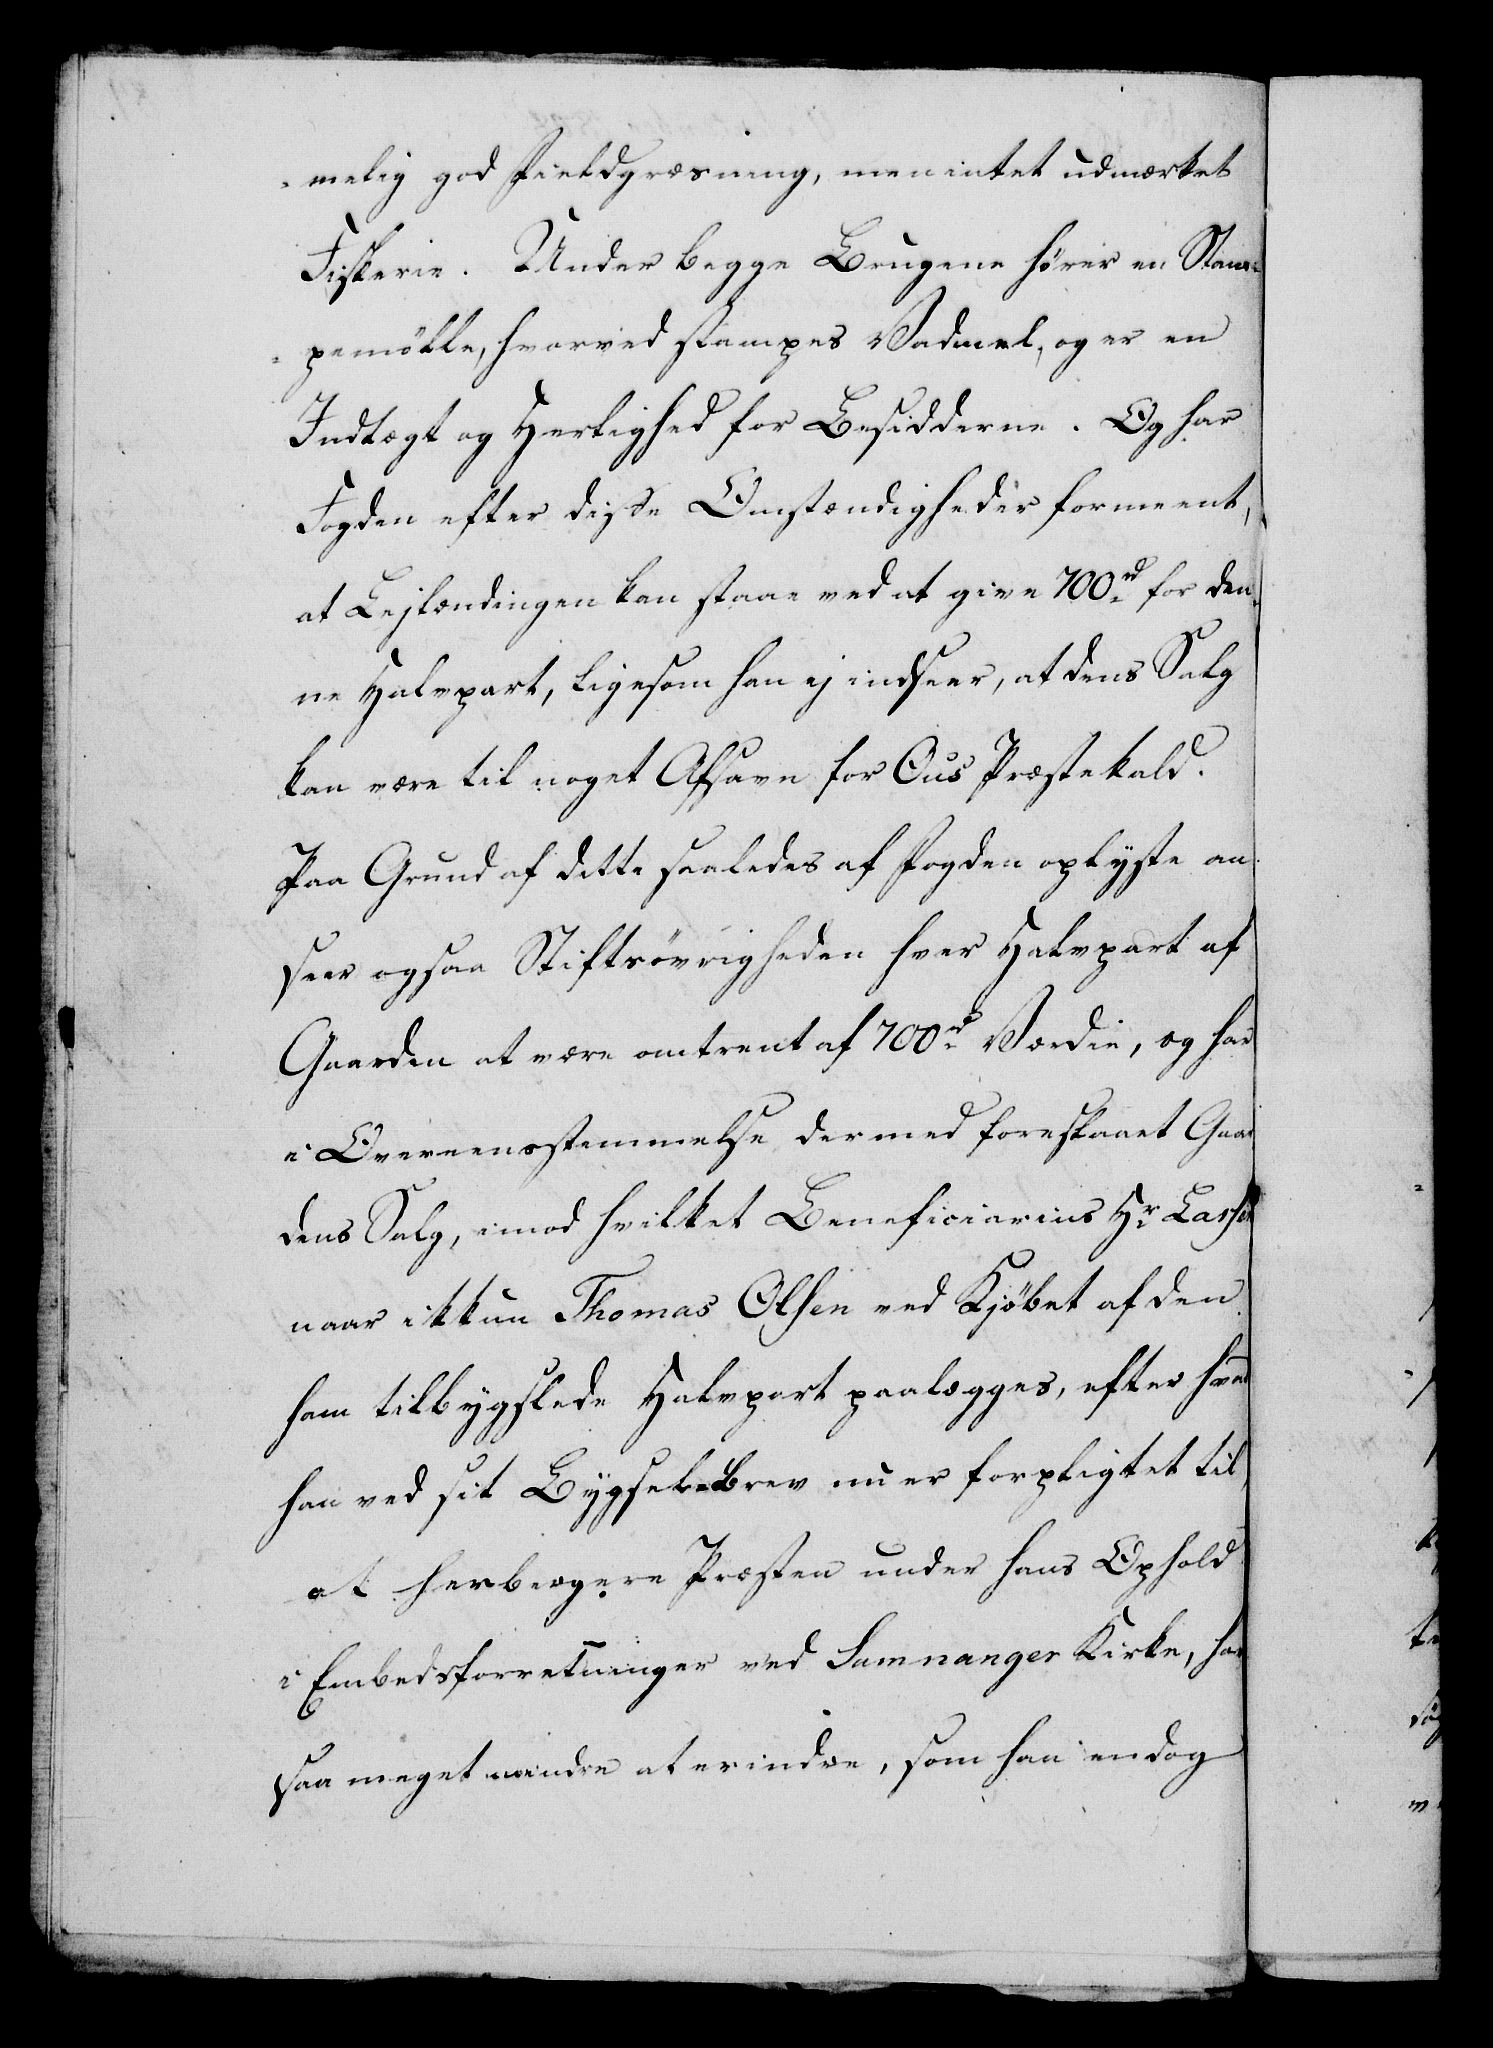 -melig god Fieldgræsning, men intet udmærket
Fiskerie. Under begge Brugene hörer en Stam-
-pemölle, hvorved stampes Vadmel, og er en
Indtægt og Herlighed for Besidderne. Og har
Fogden efter disse Omstændigheder formeent,
at Lejlændingen kan staae ved at give 700 rd for den-
ne Halvpart, ligesom han ej indseer, at dens Salg
kan være til noget Afsavn for Ous Præstekald.
Paa Grund af dette saaledes af Fogden oplyste an-
seer ogsaa Stiftsövrigheden hver Halvpart af
Gaarden at være omtrent af 700 rd Værdie, og har
i Overeensstemmelse dermed foreslaaet Gaar
dens Salg, imod hvilket Beneficiarius Hr Larsen
naar ikkun Thomas Olsen ved Kjöbet af den
ham tilbygslede Halvpart paalægges, efter hvad
han ved sit Bygsel-Brev nu er forpligtet til,
at herbergere Præsten under hans Ophold
i Embedsforretninger ved Samnanger Kirke, har
saa meget mindre at erindre, som han endog